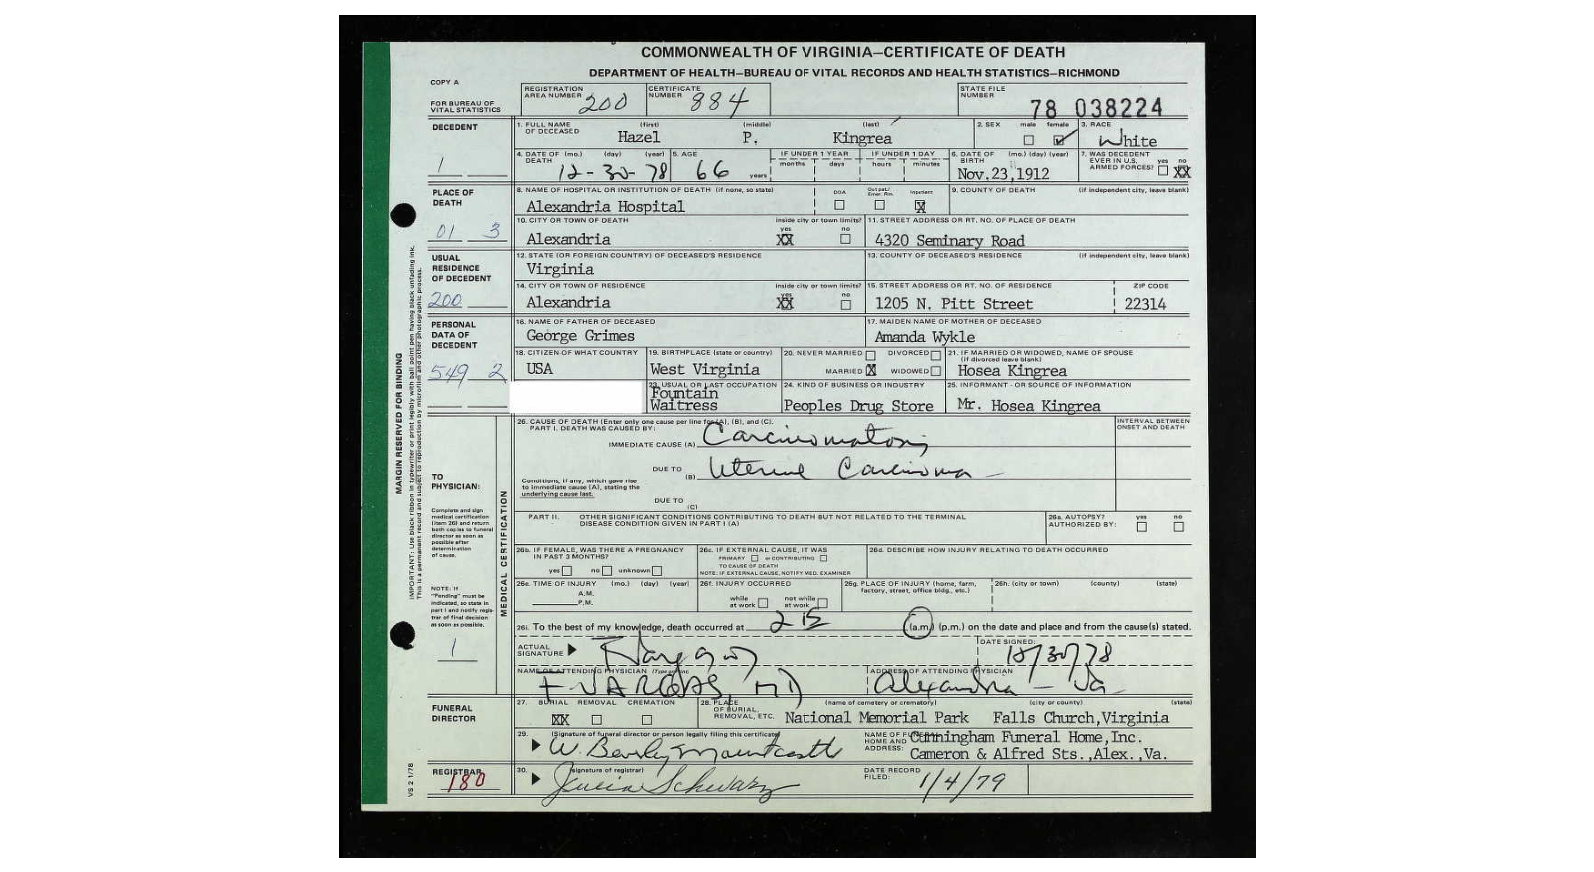 COMMONWEALTH OF VIRGINIA—CERTIFICATE OF DEATH
DEPARTMENT OF HEALTH—BUREAU OF VITAL RECORDS AND HEALTH STATISTICS—RICHMOND
COPY A
FOR BUREAU OF VITAL STATISTICS
REGISTRATION AREA NUMBER 200
CERTIFICATE NUMBER 884
STATE FILE NUMBER 78 038224
DECEDENT
1
1. FULL NAME OF DECEASED (first) (middle) (last)
Hazel P. Kingrea
2. SEX male female
3. RACE White
4. DATE OF DEATH (mo.) (day) (year) 12-30-78
5. AGE 66 years
IF UNDER 1 YEAR months days
IF UNDER 1 DAY hours minutes
6. DATE OF BIRTH (mo.) (day) (year) Nov.23,1912
7. WAS DECEDENT EVER IN U.S. ARMED FORCES? yes no XX
PLACE OF DEATH
01 3
8. NAME OF HOSPITAL OR INSTITUTION OF DEATH (if none, so state)
Alexandria Hospital
DOA Out pat/ Emer. Rm. Inpatient X
9. COUNTY OF DEATH (if independent city, leave blank)
10. CITY OR TOWN OF DEATH inside city or town limits? yes no
Alexandria XX
11. STREET ADDRESS OR RT. NO. OF PLACE OF DEATH
4320 Seminary Road
USUAL RESIDENCE OF DECEDENT
200
12. STATE (OR FOREIGN COUNTRY) OF DECEASED'S RESIDENCE
Virginia
13. COUNTY OF DECEASED'S RESIDENCE (if independent city, leave blank)
14. CITY OR TOWN OF RESIDENCE inside city or town limits? yes no
Alexandria XX
15. STREET ADDRESS OR RT. NO. OF RESIDENCE ZIP CODE
1205 N. Pitt Street 22314
PERSONAL DATA OF DECEDENT
549 2
16. NAME OF FATHER OF DECEASED
George Grimes
17. MAIDEN NAME OF MOTHER OF DECEASED
Amanda Wykle
18. CITIZEN OF WHAT COUNTRY
USA
19. BIRTHPLACE (state or country)
West Virginia
20. NEVER MARRIED DIVORCED
MARRIED X WIDOWED
21. IF MARRIED OR WIDOWED, NAME OF SPOUSE (if divorced leave blank)
Hosea Kingrea
23. USUAL OR LAST OCCUPATION
Fountain
Waitress
24. KIND OF BUSINESS OR INDUSTRY
Peoples Drug Store
25. INFORMANT - OR SOURCE OF INFORMATION
Mr. Hosea Kingrea
MARGIN RESERVED FOR BINDING
TO PHYSICIAN:
Complete and sign medical certification (item 26) and return both copies to funeral director as soon as possible after determination of cause.
NOTE: If "Pending" must be indicated, so state in part I and notify registrar of final decision as soon as possible.
1
MEDICAL CERTIFICATION
26. CAUSE OF DEATH (Enter only one cause per line for (A), (B), and (C).
PART I. DEATH WAS CAUSED BY:
INTERVAL BETWEEN ONSET AND DEATH
IMMEDIATE CAUSE (A) Carcinomatosis
DUE TO (B) Uterine Carcinoma
Conditions, if any, which gave rise to immediate cause (A), stating the underlying cause last.
DUE TO (C)
PART II. OTHER SIGNIFICANT CONDITIONS CONTRIBUTING TO DEATH BUT NOT RELATED TO THE TERMINAL DISEASE CONDITION GIVEN IN PART I (A)
26a. AUTOPSY? AUTHORIZED BY: yes no
26b. IF FEMALE, WAS THERE A PREGNANCY IN PAST 3 MONTHS?
yes no unknown
26c. IF EXTERNAL CAUSE, IT WAS
PRIMARY or CONTRIBUTING
TO CAUSE OF DEATH
NOTE: IF EXTERNAL CAUSE, NOTIFY MED. EXAMINER
26d. DESCRIBE HOW INJURY RELATING TO DEATH OCCURRED
26e. TIME OF INJURY (mo.) (day) (year)
A.M.
P.M.
26f. INJURY OCCURRED
while at work not while at work
26g. PLACE OF INJURY (home, farm, factory, street, office bldg., etc.)
26h. (city or town) (county) (state)
26i. To the best of my knowledge, death occurred at 215 (a.m.) (p.m.) on the date and place and from the cause(s) stated.
ACTUAL SIGNATURE
DATE SIGNED: 12/30/78
NAME OF ATTENDING PHYSICIAN
F. VARGAS, MD
ADDRESS OF ATTENDING PHYSICIAN
Alexandria - Va.
FUNERAL DIRECTOR
27. BURIAL REMOVAL CREMATION
XX
28. PLACE OF BURIAL, REMOVAL, ETC. (name of cemetery or crematory) (city or county) (state)
National Memorial Park Falls Church,Virginia
29. (Signature of funeral director or person legally filing this certificate)
W. Beverley Mountcastle
NAME OF FUNERAL HOME AND ADDRESS:
Cunningham Funeral Home,Inc.
Cameron & Alfred Sts.,Alex.,Va.
REGISTRAR
180
30. (signature of registrar)
Julia Schwarz
DATE RECORD FILED: 1/4/79
VS 2 1/78